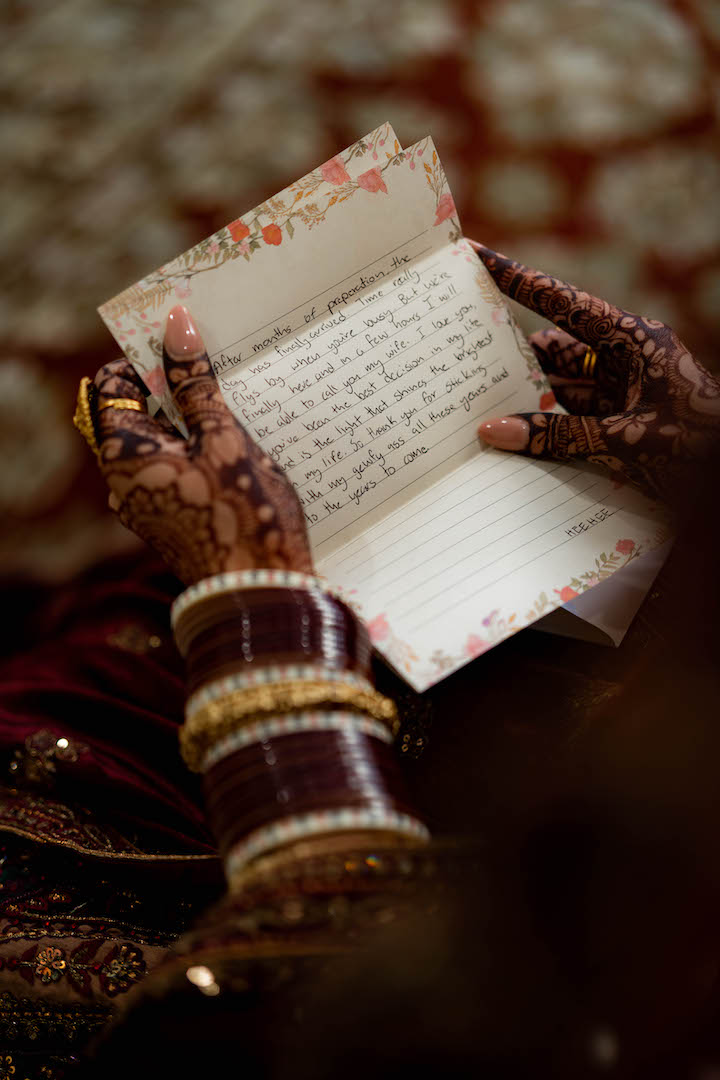 After months of preparation, the
day has finally arrived. Time really
flys by when you're busy. But we're
finally here and in a few hours I will
be able to call you my wife. I love you,
you've been the best decision in my life
and is the light that shines the brightest
in my life. So thank you for sticking
with my goofy ass all these years and
to the years to come.
HEEHEE